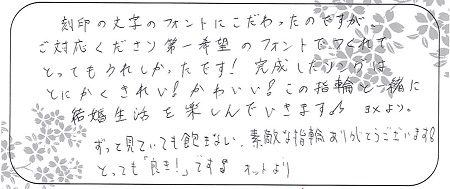 刻印の文字のフォントにこだわったのですが、
ご対応くださり第一希望のフォントでつくれて
とってもうれしかったです！完成したリングは
とにかくきれい！かわいい！この指輪と一緒に
結婚生活を楽しんでいきます♪ ヨメより。
ずっと見ていても飽きない、素敵な指輪ありがとうございます！
とっても「良き！」です！ オットより